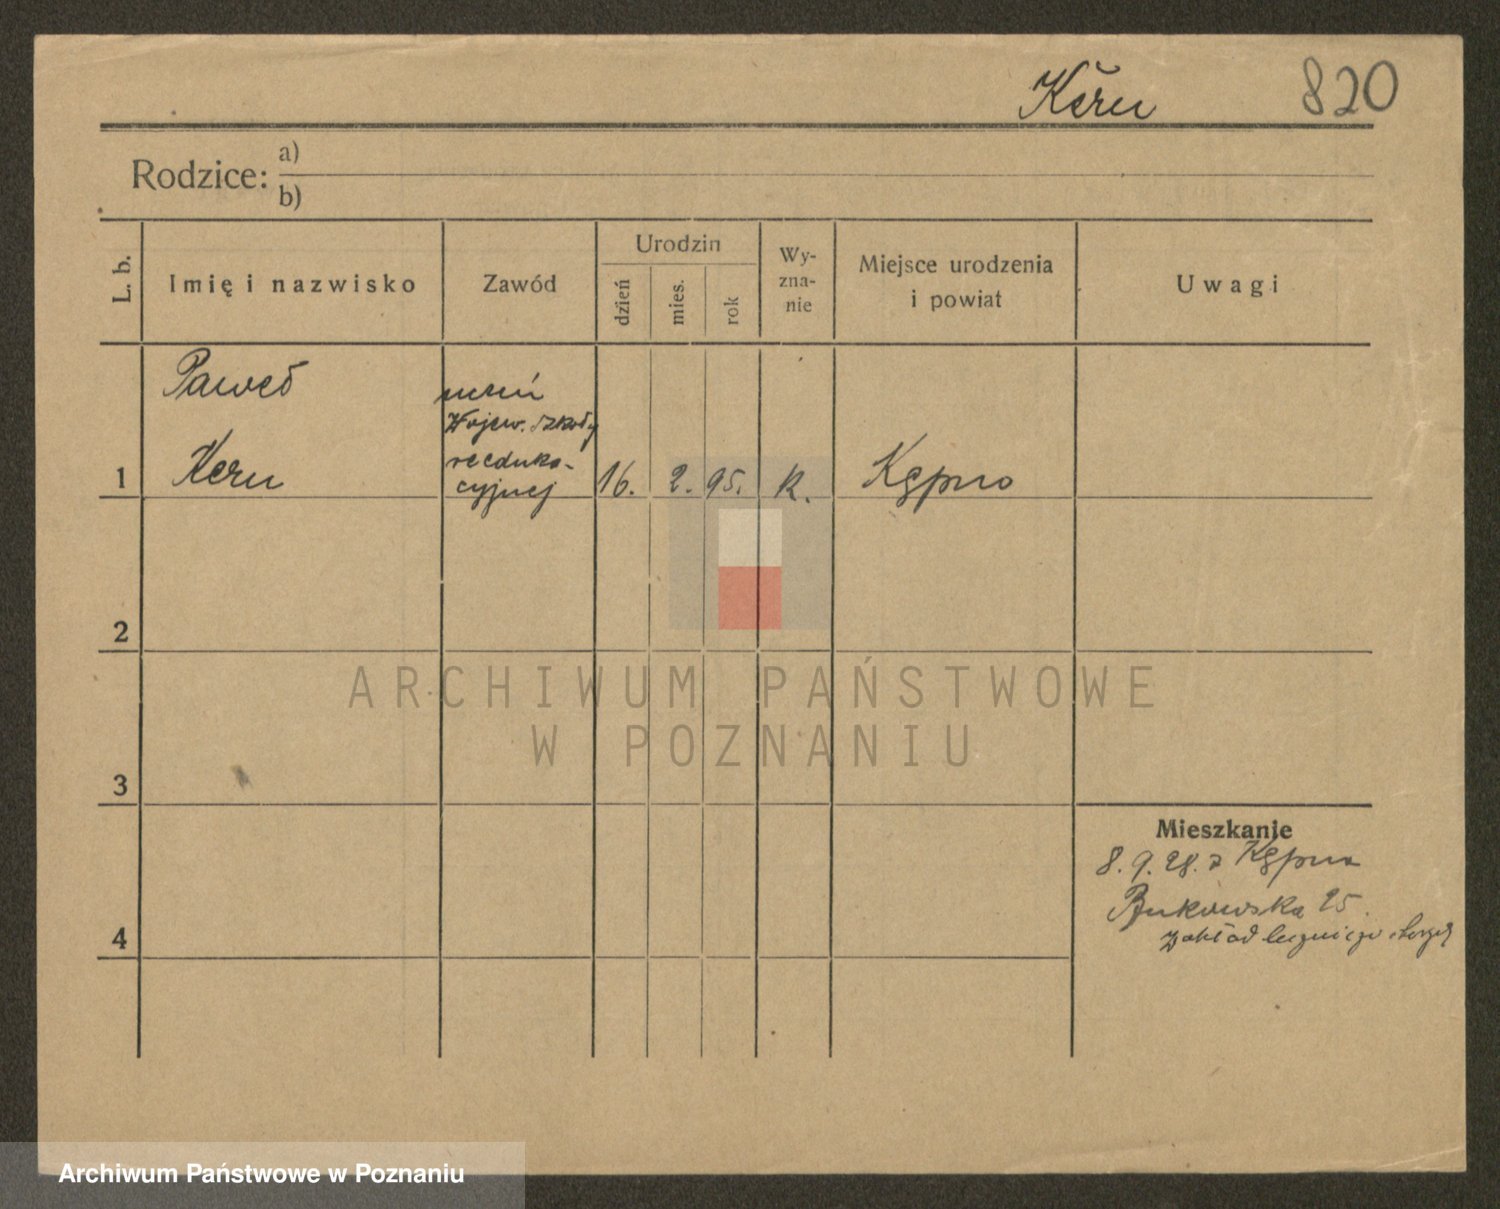 Keru 820
Rodzice: a)
b)
L. b. Imię i nazwisko Zawód Urodzin dzień mies. rok Wy-zna-nie Miejsce urodzenia i powiat Uwagi
Paweł uczeń
Wojew. szkoły
1 Keru reeduka- 16. 2. 95. k. Kępno
cyjnej
2
ARCHIWUM PAŃSTWOWE
W POZNANIU
3
Mieszkanie
8. 9. 28. z Kępna
4 Bukowska 25.
zakład leczniczo
Archiwum Państwowe w Poznaniu